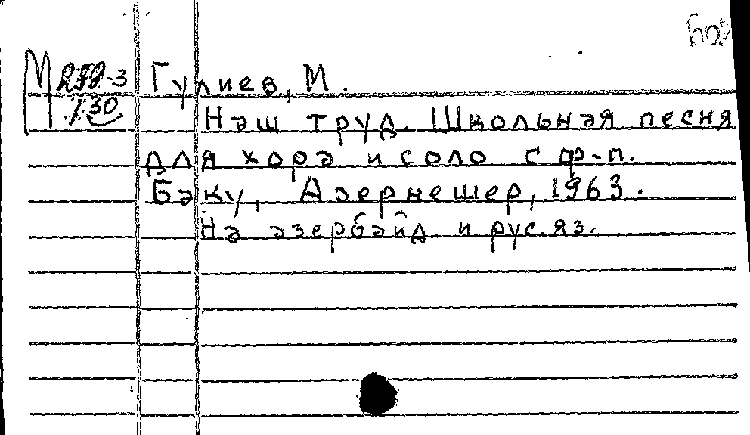 М 252-3 Гулиев, М.
130
Наш труд. Школьная песня
для хора и соло с ф-п.
Баку, Азернешер, 1963.
На азербайд. и рус. яз.